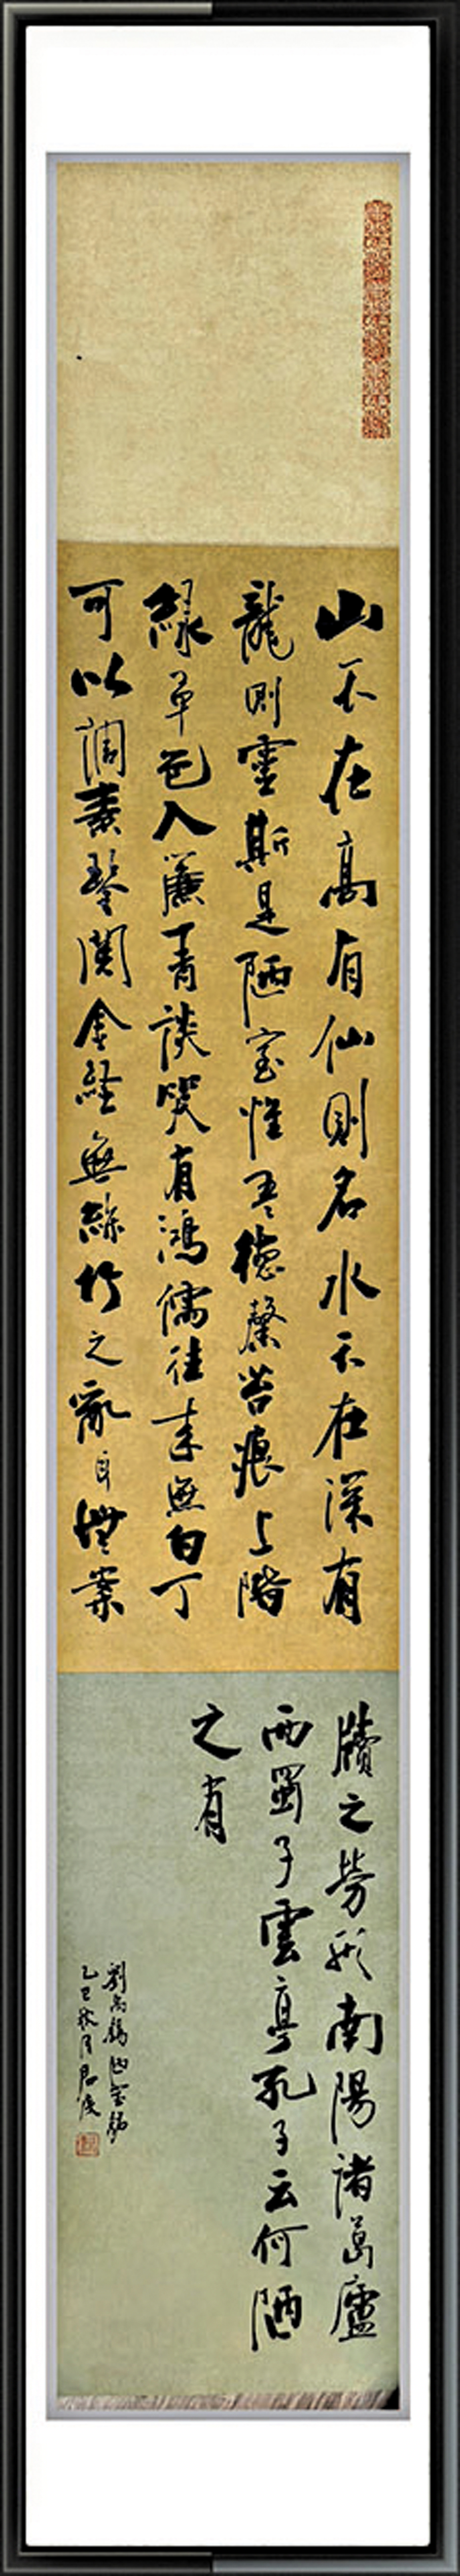 山不在高有仙則名水不在深有
龍則靈斯是陋室惟吾德馨苔痕上階
綠草色入簾青談笑有鴻儒往來無白丁
可以調素琴閱金經無絲竹之亂耳無案
牘之勞形南陽諸葛廬
西蜀子雲亭孔子云何陋
之有
劉禹錫陋室銘
乙巳秋月